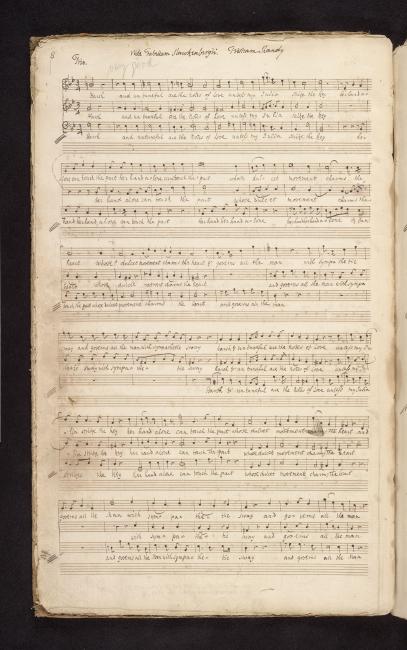 8 Vide Fabulam Slawkenbergii. Tristram Shandy
Trio.
very good
Harsh and untuneful are the Notes of love unless my Julia strike the key her hand a-
Harsh and untuneful are the Notes of love unless my Julia strike the key
Harsh and untuneful are the Notes of love unless my Julia strike the key her
-lone can touch the part her hand alone can touch the part whose dulcet movement charms the
her hand alone can touch the part whose dulcet movement charms the
hand her hand alone can touch the part her hand her hand alone
heart whose dulcet movement charms the heart & governs all the man with sympathetic
whose dulcet movement charms the heart and governs all the man with sympa
touch the part whose dulcet movement charms the heart and governs all the man
sway and governs all the man with sympathetic sway harsh & untuneful are the Notes of love unless my Ju-
-thetic sway with sympa - the - tic sway harsh & untuneful are the Notes of love unless my Ju-
harsh & untuneful are the Notes of love unless my Julia
- lia strike the key her hand alone can touch the part whose dulcet movement charms the heart and
- lia strike the key her hand alone can touch the part whose dulcet movement charms the heart
strikes the key her hand alone can touch the part whose dulcet movement charms the heart
governs all the man with sympa - the - tic sway and governs all the man
with sym - pa - the - tic sway and governs all the man
and governs all the man with sympathe - tic sway and governs all the man